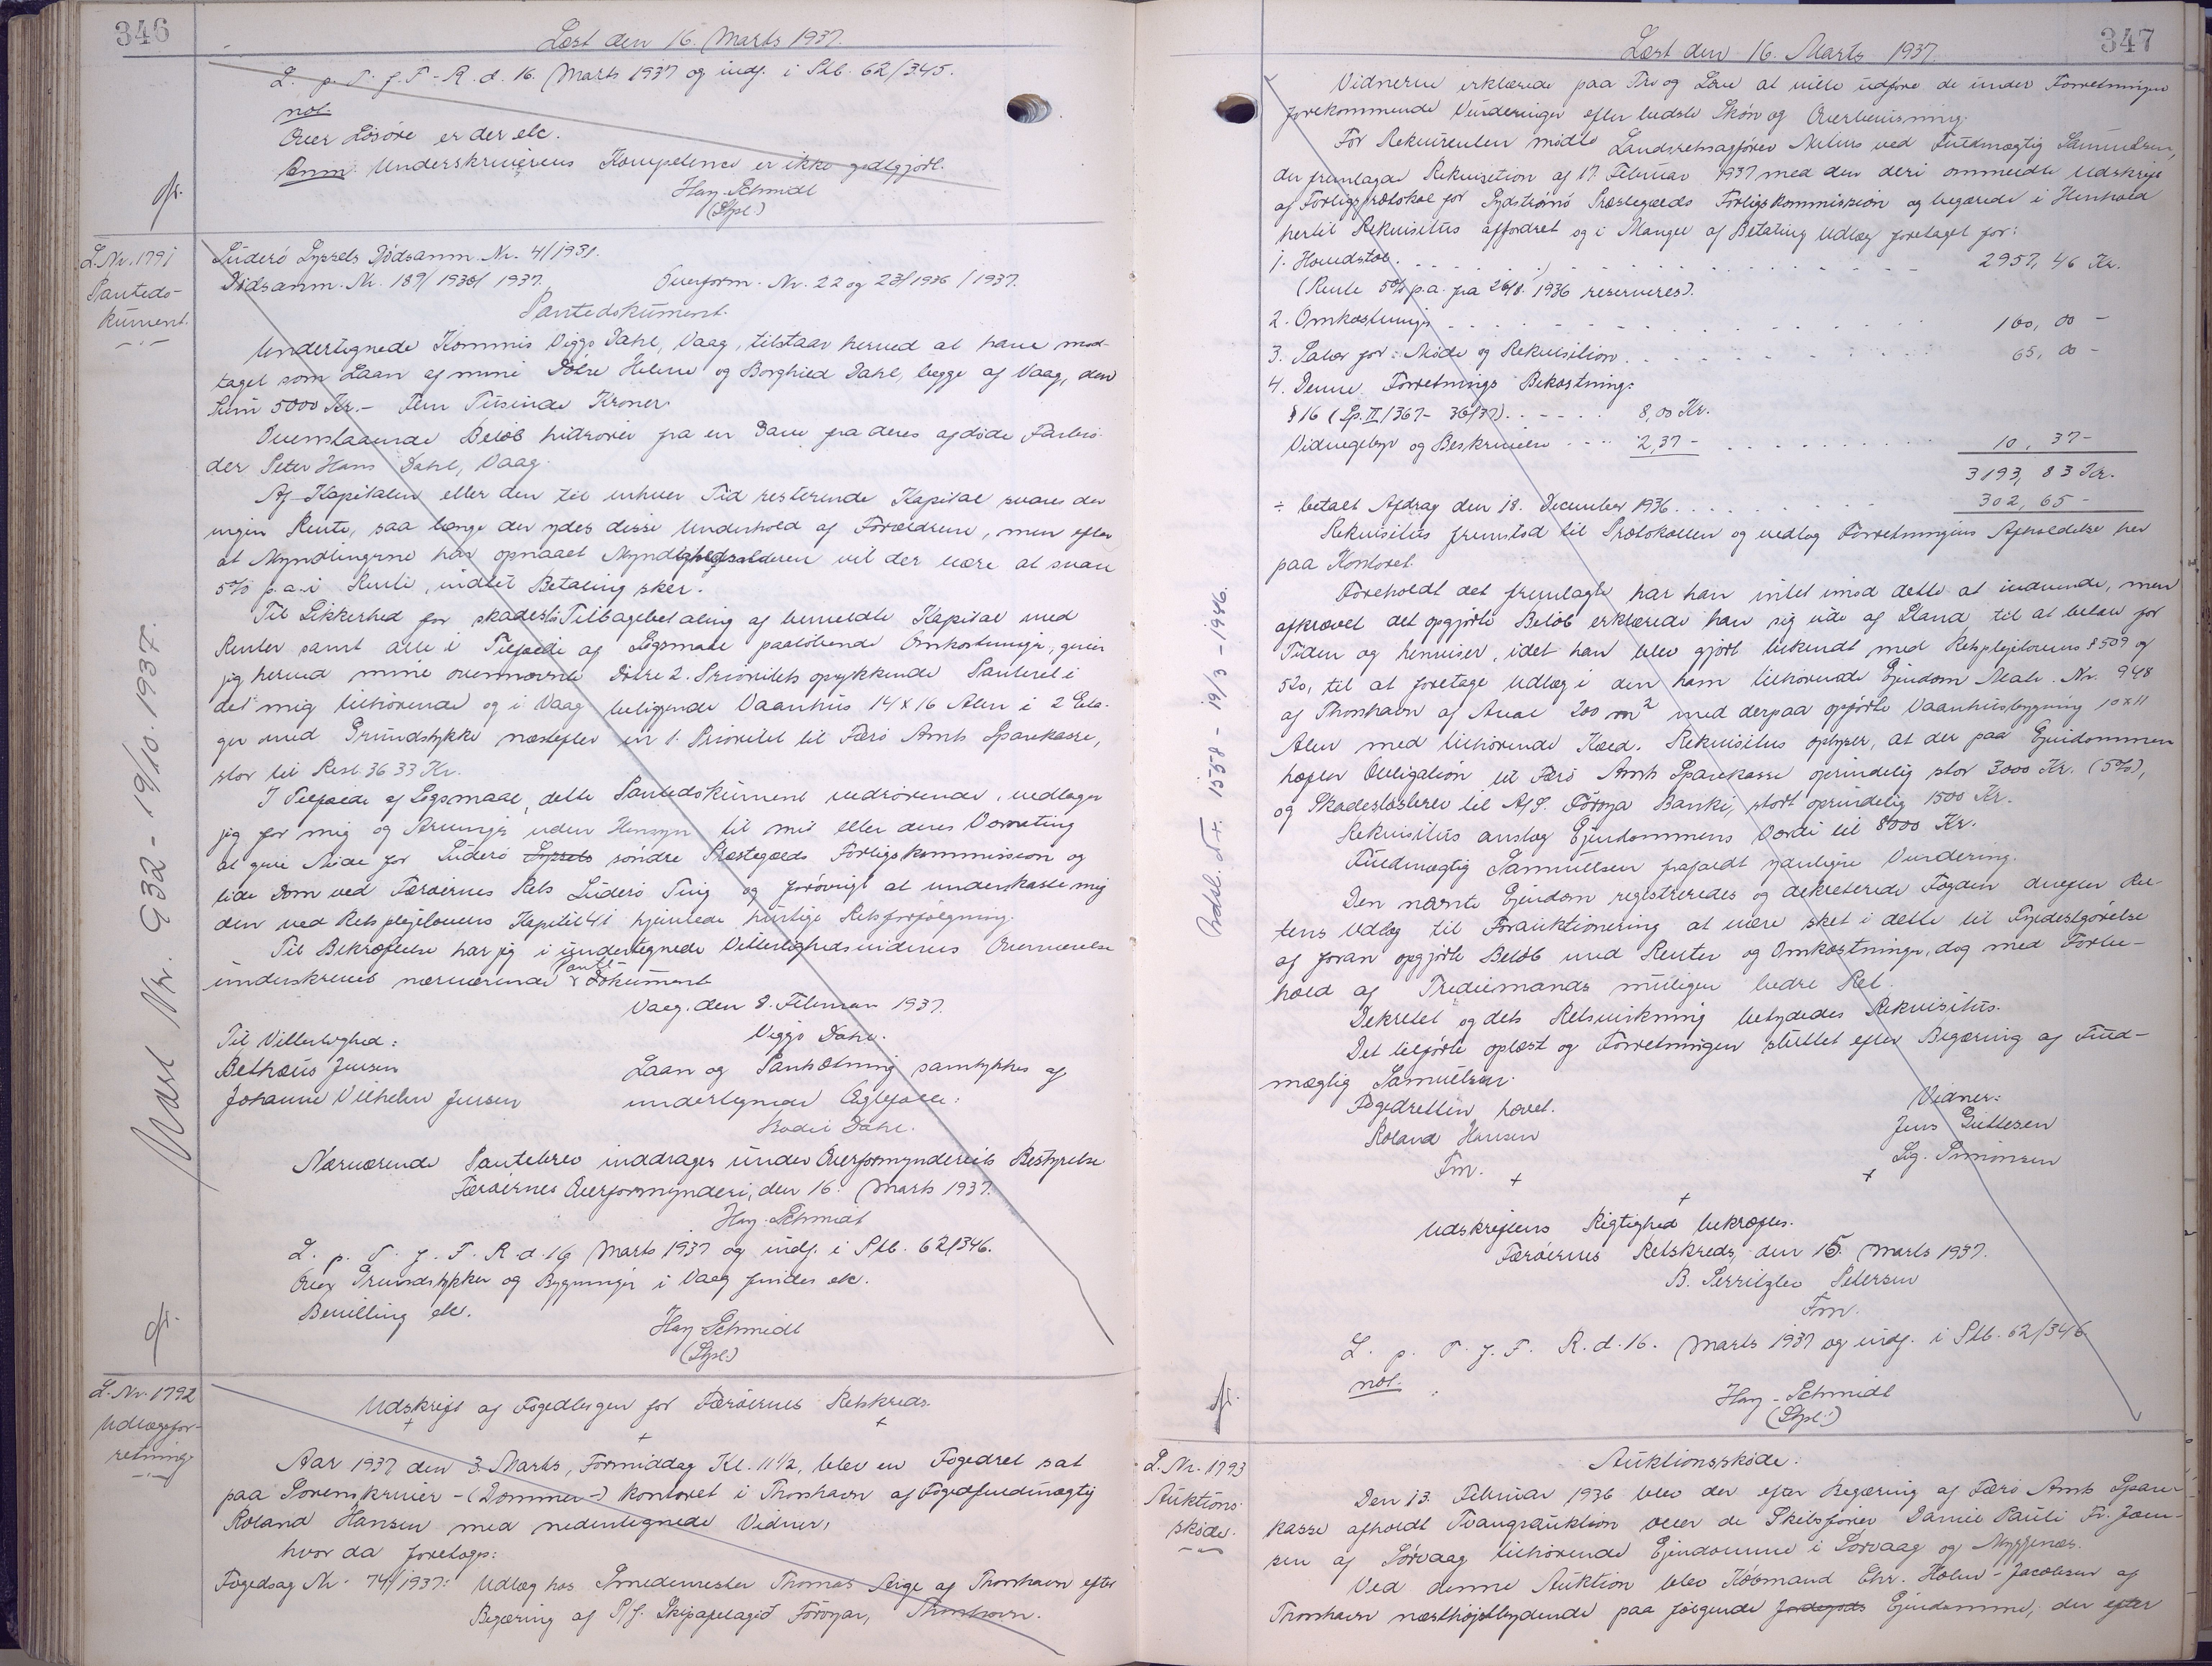 346
Læst den 16. Marts 1937.
L. p. T. f. F. R. d. 16. Marts 1937 og indf. i Ptb. 62/345.
not.
Over Løsøre er der etc.
Anm. Underskriverens Kompetence er ikke godtgjort.
Hay-Schmidt
(Stpl.)
L. Nr. 1791
Pantedo-
kument.
Suderø Syssels Dødsanm. Nr. 4/1931.
Dødsanm. Nr. 189/1930/1937. Overform. Nr. 22 og 23/1936/1937.
Pantedokument.
Undertegnede Kommis Viggo Dahl, Vaag, tilstaar herved at have mod-
taget som Laan af mine Døtre Helene og Borghild Dahl, begge af Vaag, den
Sum 5000 Kr. – Fem Tusinde Kroner.
Ovenstaaende Beløb hidrører fra en Gave fra deres afdøde Farbro-
der Peter Hans Dahl, Vaag.
Af Kapitalen eller den til enhver Tid resterende Kapital svares der
ingen Rente, saa længe der ydes disse Underhold af Forældrene, men efter
at Myndlingerne har opnaaet Myndighedsalderen vil der være at svare
5% p.a. i Rente, indtil Betaling sker.
Til Sikkerhed for skadesløs Tilbagebetaling af bemeldte Kapital med
Renter samt alle i Tilfælde af Søgsmaal paaløbende Omkostninger, giver
jeg herved mine ovennævnte Døtre 2. Prioritets oprykkende Panteret i
det mig tilhørende og i Vaag beliggende Vaanhus 14 x 16 Alen i 2 Eta-
ger med Grundstykke næstefter en 1. Prioritet til Færø Amts Sparekasse,
stor til Rest 3633 Kr.
I Tilfælde af Søgsmaal, dette Pantedokument vedrørende, vedtager
jeg for mig og Arvinger uden Hensyn til mit eller deres Værneting
at give Møde for Suderø Syssels søndre Præstegælds Forligskommission og
lide Dom ved Færøernes Rets Suderø Ting og forøvrigt at underkaste mig
den ved Retsplejelovens Kapitel 41 hjemlede hurtige Retsforfølgning.
Til Bekræftelse har jeg i undertegnede Vitterlighedsvidners Overværelse
underskrevet nærværende Pante-Dokument.
Vaag, den 8. Februar 1937.
Viggo Dahl.
Til Vitterlighed:
Bethæus Jensen
Johanne Vilhelm Jensen
Laan og Pantsætning samtykkes af
undertegnede Ægtefælle:
Bodil Dahl.
Nærværende Pantebrev inddrages under Overformynderiets Bestyrelse.
Færøernes Overformynderi, den 16. Marts 1937.
Hay-Schmidt
L. p. T. f. F. R. d. 16 Marts 1937 og indf. i Ptb. 62/346.
Over Grundstykker og Bygninger i Vaag findes etc.
Bevilling etc.
Hay-Schmidt
(Stpl.)
Nr. 932 - 19/10. 1937.
L. Nr. 1792
Udlægsfor-
retning.
Udskrift af Fogedbogen for Færøernes Retskreds.
Aar 1937 den 3. Marts, Formiddag Kl. 11½, blev en Fogedret sat
paa Sorenskriver - (Dommer-) kontoret i Thorshavn af Fogedfuldmægtig
Roland Hansen med nedentegnede Vidner,
hvor da foretoges:
Fogedsag Nr. 74/1937: Udlæg hos Smedemester Thomas Arge af Thorshavn efter
Begæring af P/f. Skipafelagið Føroyar, Thorshavn.
347
Læst den 16. Marts 1937.
Vidnerne erklærede paa Tro og Love at ville udføre de under Forretningen
forekommende Vurderinger efter bedste Skøn og Overbevisning.
For Rekvirenten mødte Landsretssagfører Nielsen ved Fuldmægtig Samuelsen,
der fremlagde Rekvisition af 17. Februar 1937 med den deri ommeldte Udskrift
af Forligsprotokol for Sydstrømø Præstegælds Forligskommission og begærede i Henhold
hertil Rekvisitus affordret og i Mangel af Betaling Udlæg foretaget for:
1. Hovedstol. 2957,46 Kr.
(Rente 5% p.a. fra 26/8. 1936 reserveres).
2. Omkostninger 160,00 –
3. Salær for: Møde og Rekvisition. 65,00 –
4. Denne Forretnings Bekostning:
§ 16 (Sp. II/367 - 36/37). 8,00 Kr.
Vidnegebyr og Beskrivelse 2,37 – 10,37 –
3193,83 Kr.
÷ betalt Afdrag den 18. December 1936. 302,65 –
Rekvisitus fremstod til Protokollen og vedtog Forretningens Afholdelse her
paa Kontoret.
Foreholdt det fremlagte har han intet imod dette at indvende, men
afkrævet det opgjorte Beløb erklærede han sig ude af Stand til at betale for
Tiden og henviser, idet han blev gjort bekendt med Retsplejelovens § 509 og
520, til at foretage Udlæg i den ham tilhørende Ejendom Matr. Nr. 948
af Thorshavn af Areal 200 m² med derpaa opførte Vaanhusbygning 10 x 11
Alen med tilhørende Kæld. Rekvisitus oplyser, at der paa Ejendommen
hæfter Obligation til Færø Amts Sparekasse oprindelig stor 3000 Kr. (5%),
og Skadesløsbrev til A/S. Føroya Banki, stort oprindelig 1500 Kr.
Rekvisitus anslog Ejendommens Værdi til 8000 Kr.
Fuldmægtig Samuelsen frafaldt yderligere Vurdering.
Den nævnte Ejendom registreredes og dekreterede Fogden derefter Ret-
tens Udlæg til Forauktionering at være sket i dette til Fyldestgørelse
af foran opgjorte Beløb med Renter og Omkostninger, dog med Forbe-
hold af Trediemands mulige bedre Ret.
Dekretet og dets Retsvirkning betydedes Rekvisitus.
Det tilførte oplæst og Forretningen sluttet efter Begæring af Fuld-
mægtig Samuelsen.
Fogedretten hævet.
Roland Hansen
Fm.
Vidner:
Jens Guttesen
Sig. Simonsen
Udskriftens Rigtighed bekræftes.
Færøernes Retskreds, den 15. Marts 1937.
B. Serritzlev Petersen
Fm.
L. p. T. f. F. R. d. 16. Marts 1937 og indf. i Ptb. 62/346
not.
Hay-Schmidt
(Stpl.)
Nr. 1558 - 19/3 - 1946.
L. Nr. 1793
Auktions-
skøde.
Auktionsskøde.
Den 13. Februar 1936 blev der efter Begæring af Færø Amts Spare-
kasse afholdt Tvangsauktion over de Skibsfører Daniel Pauli Fr. Joen-
sen af Sørvaag tilhørende Ejendomme i Sørvaag og Myggenæs.
Ved denne Auktion blev Købmand Chr. Holm-Jacobsen af
Thorshavn næsthøjstbydende paa følgende Jordegods Ejendomme, der efter